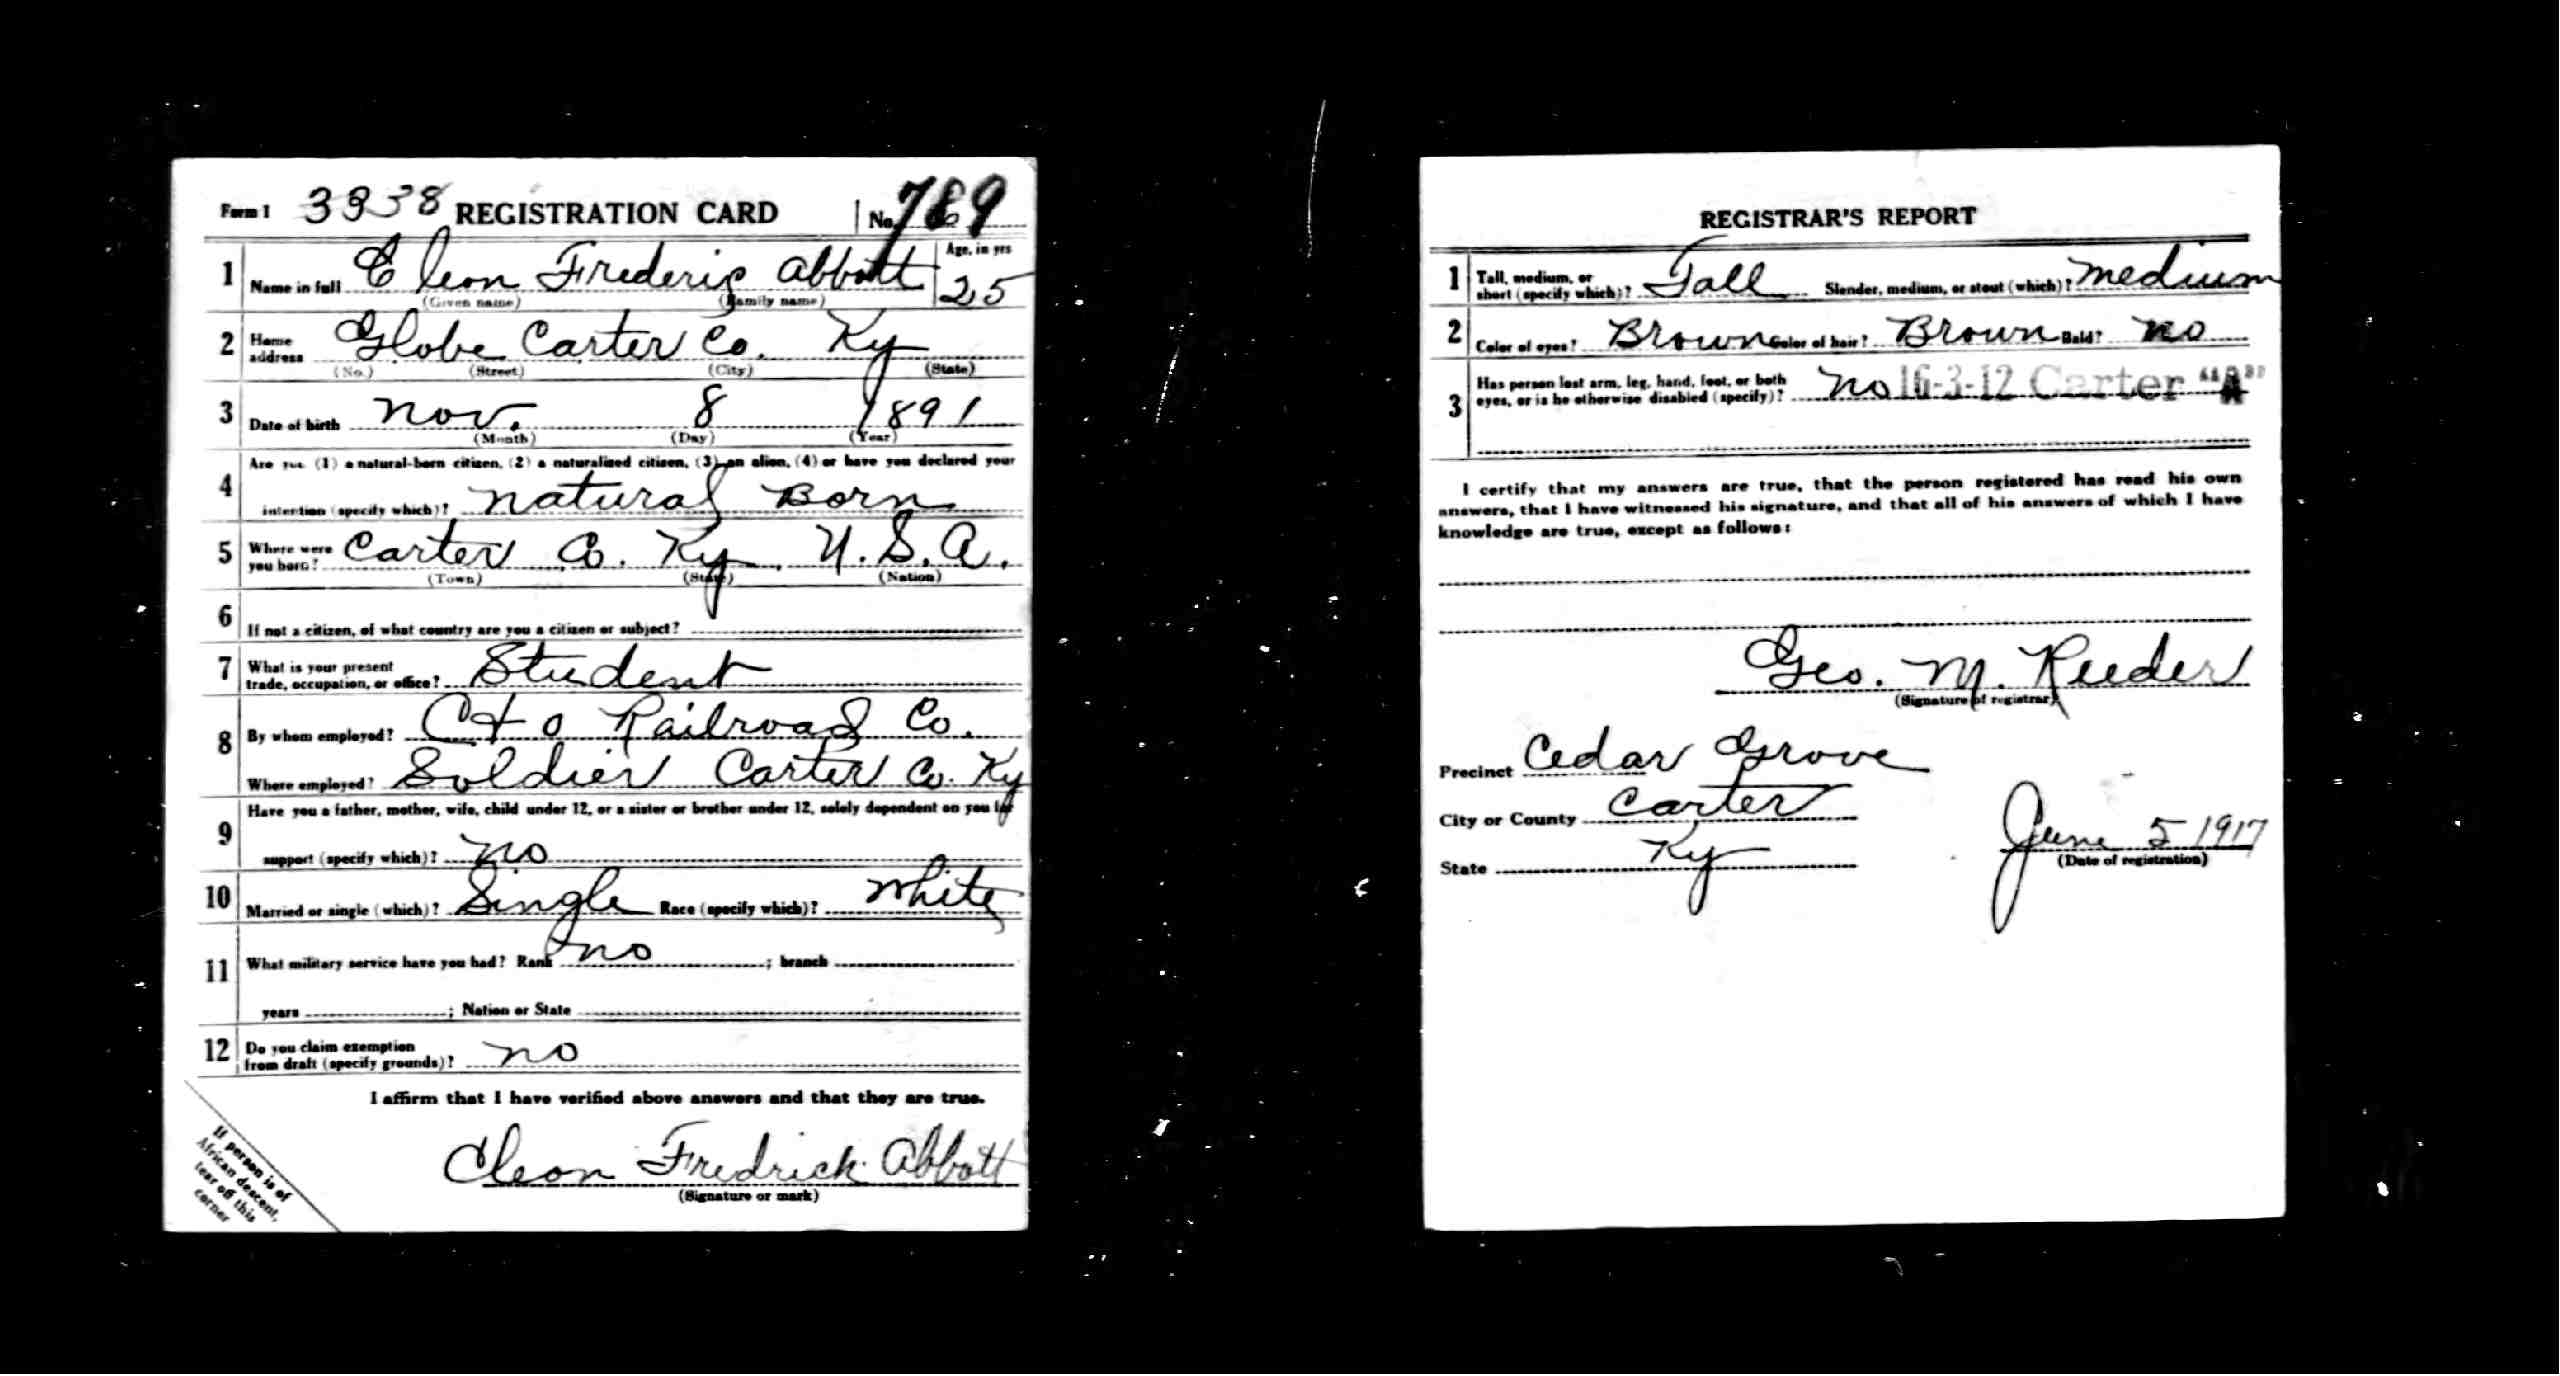 Form 1 3338 REGISTRATION CARD No. 789
1 Name in full Cleon Frederic Abbott Age, in yrs 25
(Given name) (Family name)
2 Home address Globe Carter Co. Ky
(No.) (Street) (City) (State)
3 Date of birth Nov. 8 1891
(Month) (Day) (Year)
4 Are you (1) a natural-born citizen, (2) a naturalized citizen, (3) an alien, (4) or have you declared your
intention (specify which)? Natural Born
5 Where were you born? Carter Co. Ky. U.S.A.
(Town) (State) (Nation)
6 If not a citizen, of what country are you a citizen or subject?
7 What is your present trade, occupation, or office? Student
8 By whom employed? C + O Railroad Co.
Where employed? Soldier Carter Co. Ky
9 Have you a father, mother, wife, child under 12, or a sister or brother under 12, solely dependent on you for
support (specify which)? No
10 Married or single (which)? Single Race (specify which)? White
11 What military service have you had? Rank no ; branch
years ; Nation or State
12 Do you claim exemption from draft (specify grounds)? no
I affirm that I have verified above answers and that they are true.
Cleon Fredrick Abbott
(Signature or mark)
If person is of
African descent,
tear off this
corner
REGISTRAR'S REPORT
1 Tall, medium, or short (specify which)? Tall Slender, medium, or stout (which)? Medium
2 Color of eyes? Brown Color of hair? Brown Bald? No
3 Has person lost arm, leg, hand, foot, or both
eyes, or is he otherwise disabled (specify)? No 16-3-12 Carter "A"
I certify that my answers are true, that the person registered has read his own
answers, that I have witnessed his signature, and that all of his answers of which I have
knowledge are true, except as follows:
Geo. M. Reeder
(Signature of registrar)
Precinct Cedar Grove
City or County Carter
State Ky
June 5 1917
(Date of registration)